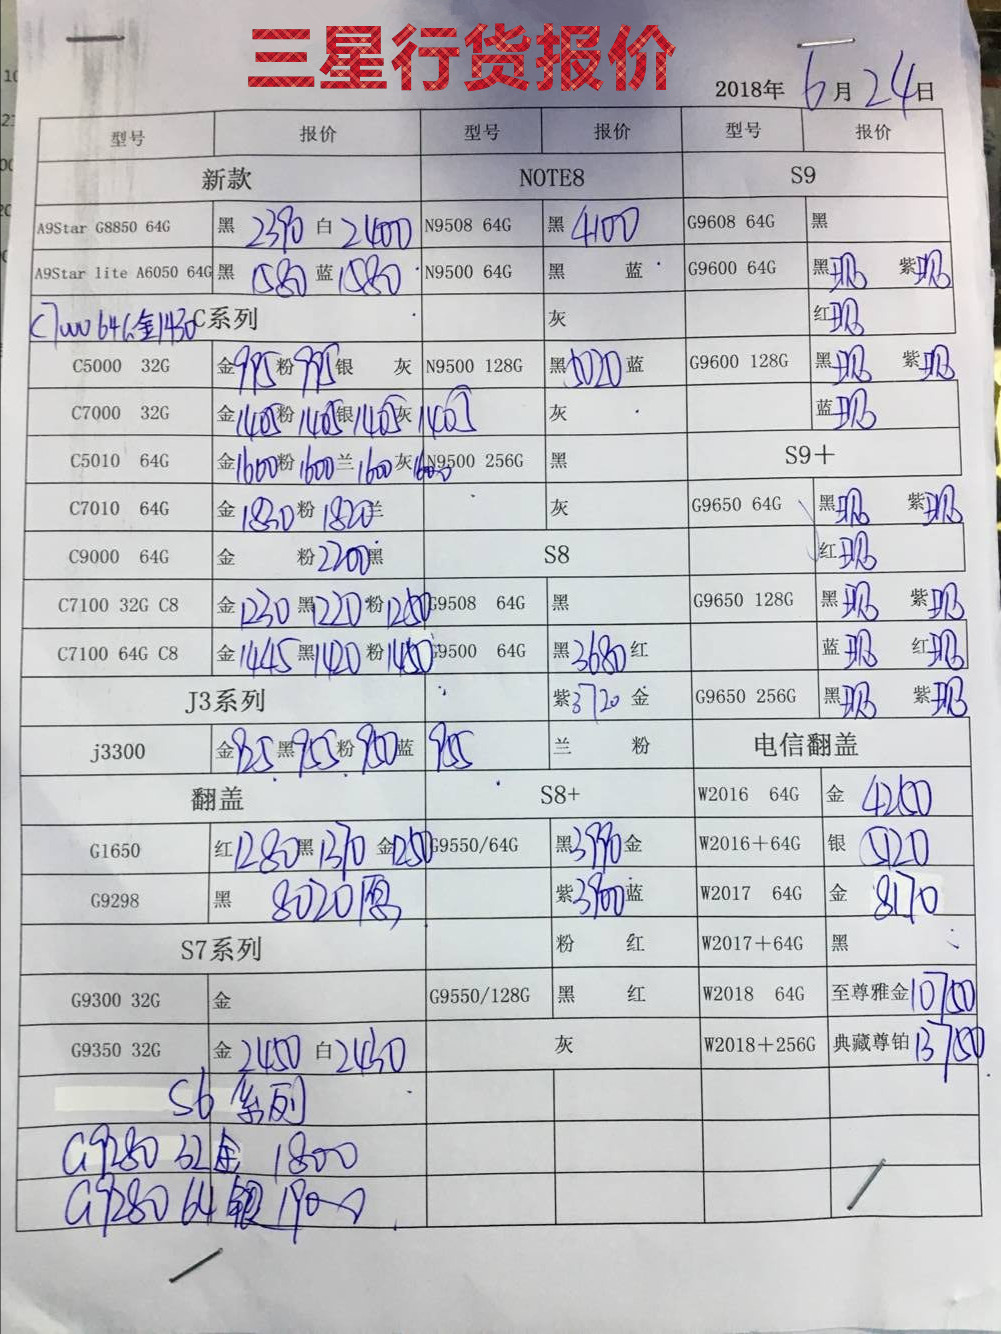 三星行货报价
2018年6月24日
型号 报价 型号 报价 型号 报价
新款 NOTE8 S9
A9Star G8850 64G 黑 2390 白 2400 N9508 64G 黑 4100 G9608 64G 黑
A9Star lite A6050 64G 黑 1580 蓝 1580 N9500 64G 黑 蓝 G9600 64G 黑现 紫现
C7000 64G金1430 C系列 灰 红现
C5000 32G 金995 粉995 银 灰 N9500 128G 黑5020 蓝 G9600 128G 黑现 紫现
C7000 32G 金1405 粉1405 银1405 灰1405 灰 蓝现
C5010 64G 金1600 粉1600 兰1600 灰1600 N9500 256G 黑 S9+
C7010 64G 金1830 粉1820 兰 灰 G9650 64G 黑现 紫现
C9000 64G 金 粉2200 黑 S8 红现
C7100 32G C8 金1230 黑1220 粉1250 G9508 64G 黑 G9650 128G 黑现 紫现
C7100 64G C8 金1445 黑1420 粉1450 G9500 64G 黑3680 红 蓝现 红现
J3系列 紫3720 金 G9650 256G 黑现 紫现
j3300 金925 黑955 粉950 蓝955 兰 粉 电信翻盖
翻盖 S8+ W2016 64G 金 4250
G1650 红1280 黑1370 金1250 G9550/64G 黑3990 金 W2016+64G 银 5120
G9298 黑 8020 紫3900 蓝 W2017 64G 金 8170
S7系列 粉 红 W2017+64G 黑
G9300 32G 金 G9550/128G 黑 红 W2018 64G 至尊雅金10750
G9350 32G 金 2450 白2430 灰 W2018+256G 典藏尊铂13750
S6 系列
G9280 32 金 1800
G9280 64 银 1900